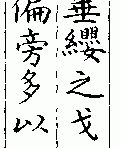 垂纓之戈
偏旁多以